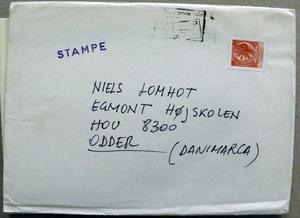 STAMPE
NIELS LOMHOT
EGMONT HØJSKOLEN
HOU 8300
ODDER (DANIMARCA)